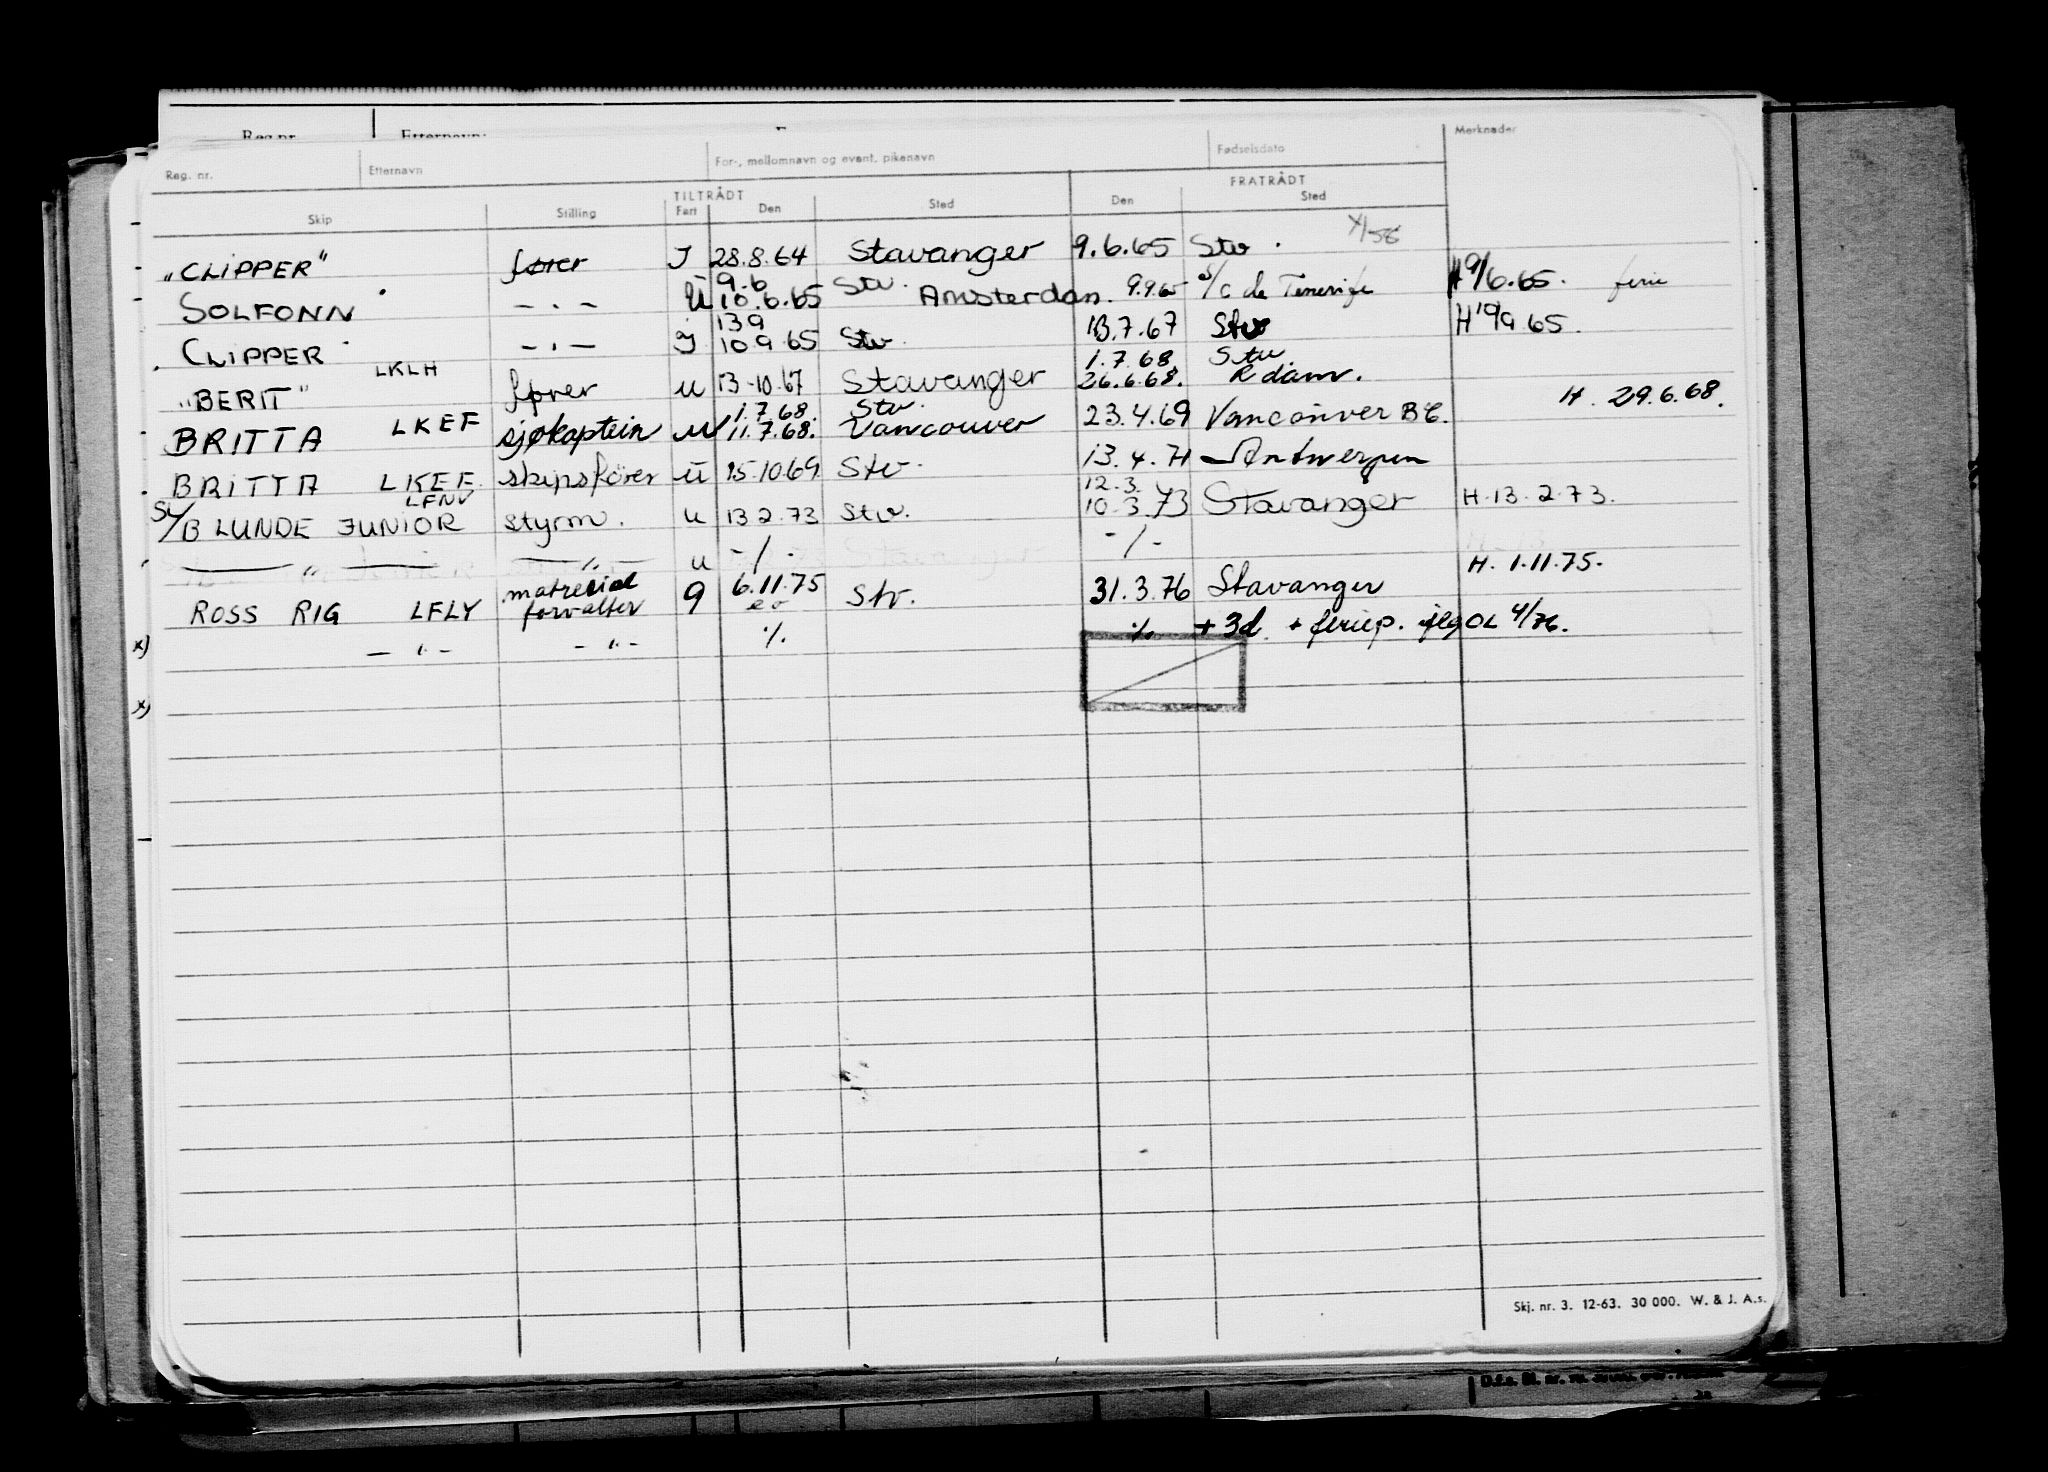 Reg. nr. Etternavn For-, mellomnavn og event. pikenavn Fødselsdato Merknader
TILTRÅDT FRATRÅDT
Skip Stilling Fart Den Sted Den Sted
"CLIPPER" fører I 28.8.64 Stavanger 9.6.65 Stv.
9.6
SOLFONN — · — U 10.6.65 Stv. Amsterdam. 9.9.65 S/C de Tenerife H 9/6.65. ferie
13 9
CLIPPER — · — I 10 9 65 Stv. 13.7.67 Stv H 10/9 65.
1.7.68 Stv.
"BERIT" LKLH fører u 13-10.67 Stavanger 26.6.68. R dam.
1.7.68. Stv.
BRITTA LKEF sjøkaptein u 11.7.68. Vancouver 23.4.69 Vancouver B.C. H. 29.6.68.
BRITTA LKEF skipsfører u 15.10.69 Stv. 13.4.71 Antwerpen
LFNV 12.3.
St/B LUNDE JUNIOR styrm. u 13 2.73 Stv. 10.3.73 Stavanger H.13.2.73.
— " — — " — u -/- -/-
ROSS RIG LFLY material forvalter g 6.11.75 Stv. 31.3.76 Stavanger H. 1.11.75.
x) — " — — " — ./. ./. + 3d. + feriep. iflg OL 4/76.
x)
Skj. nr. 3. 12-63. 30 000. W. & J. A.s.